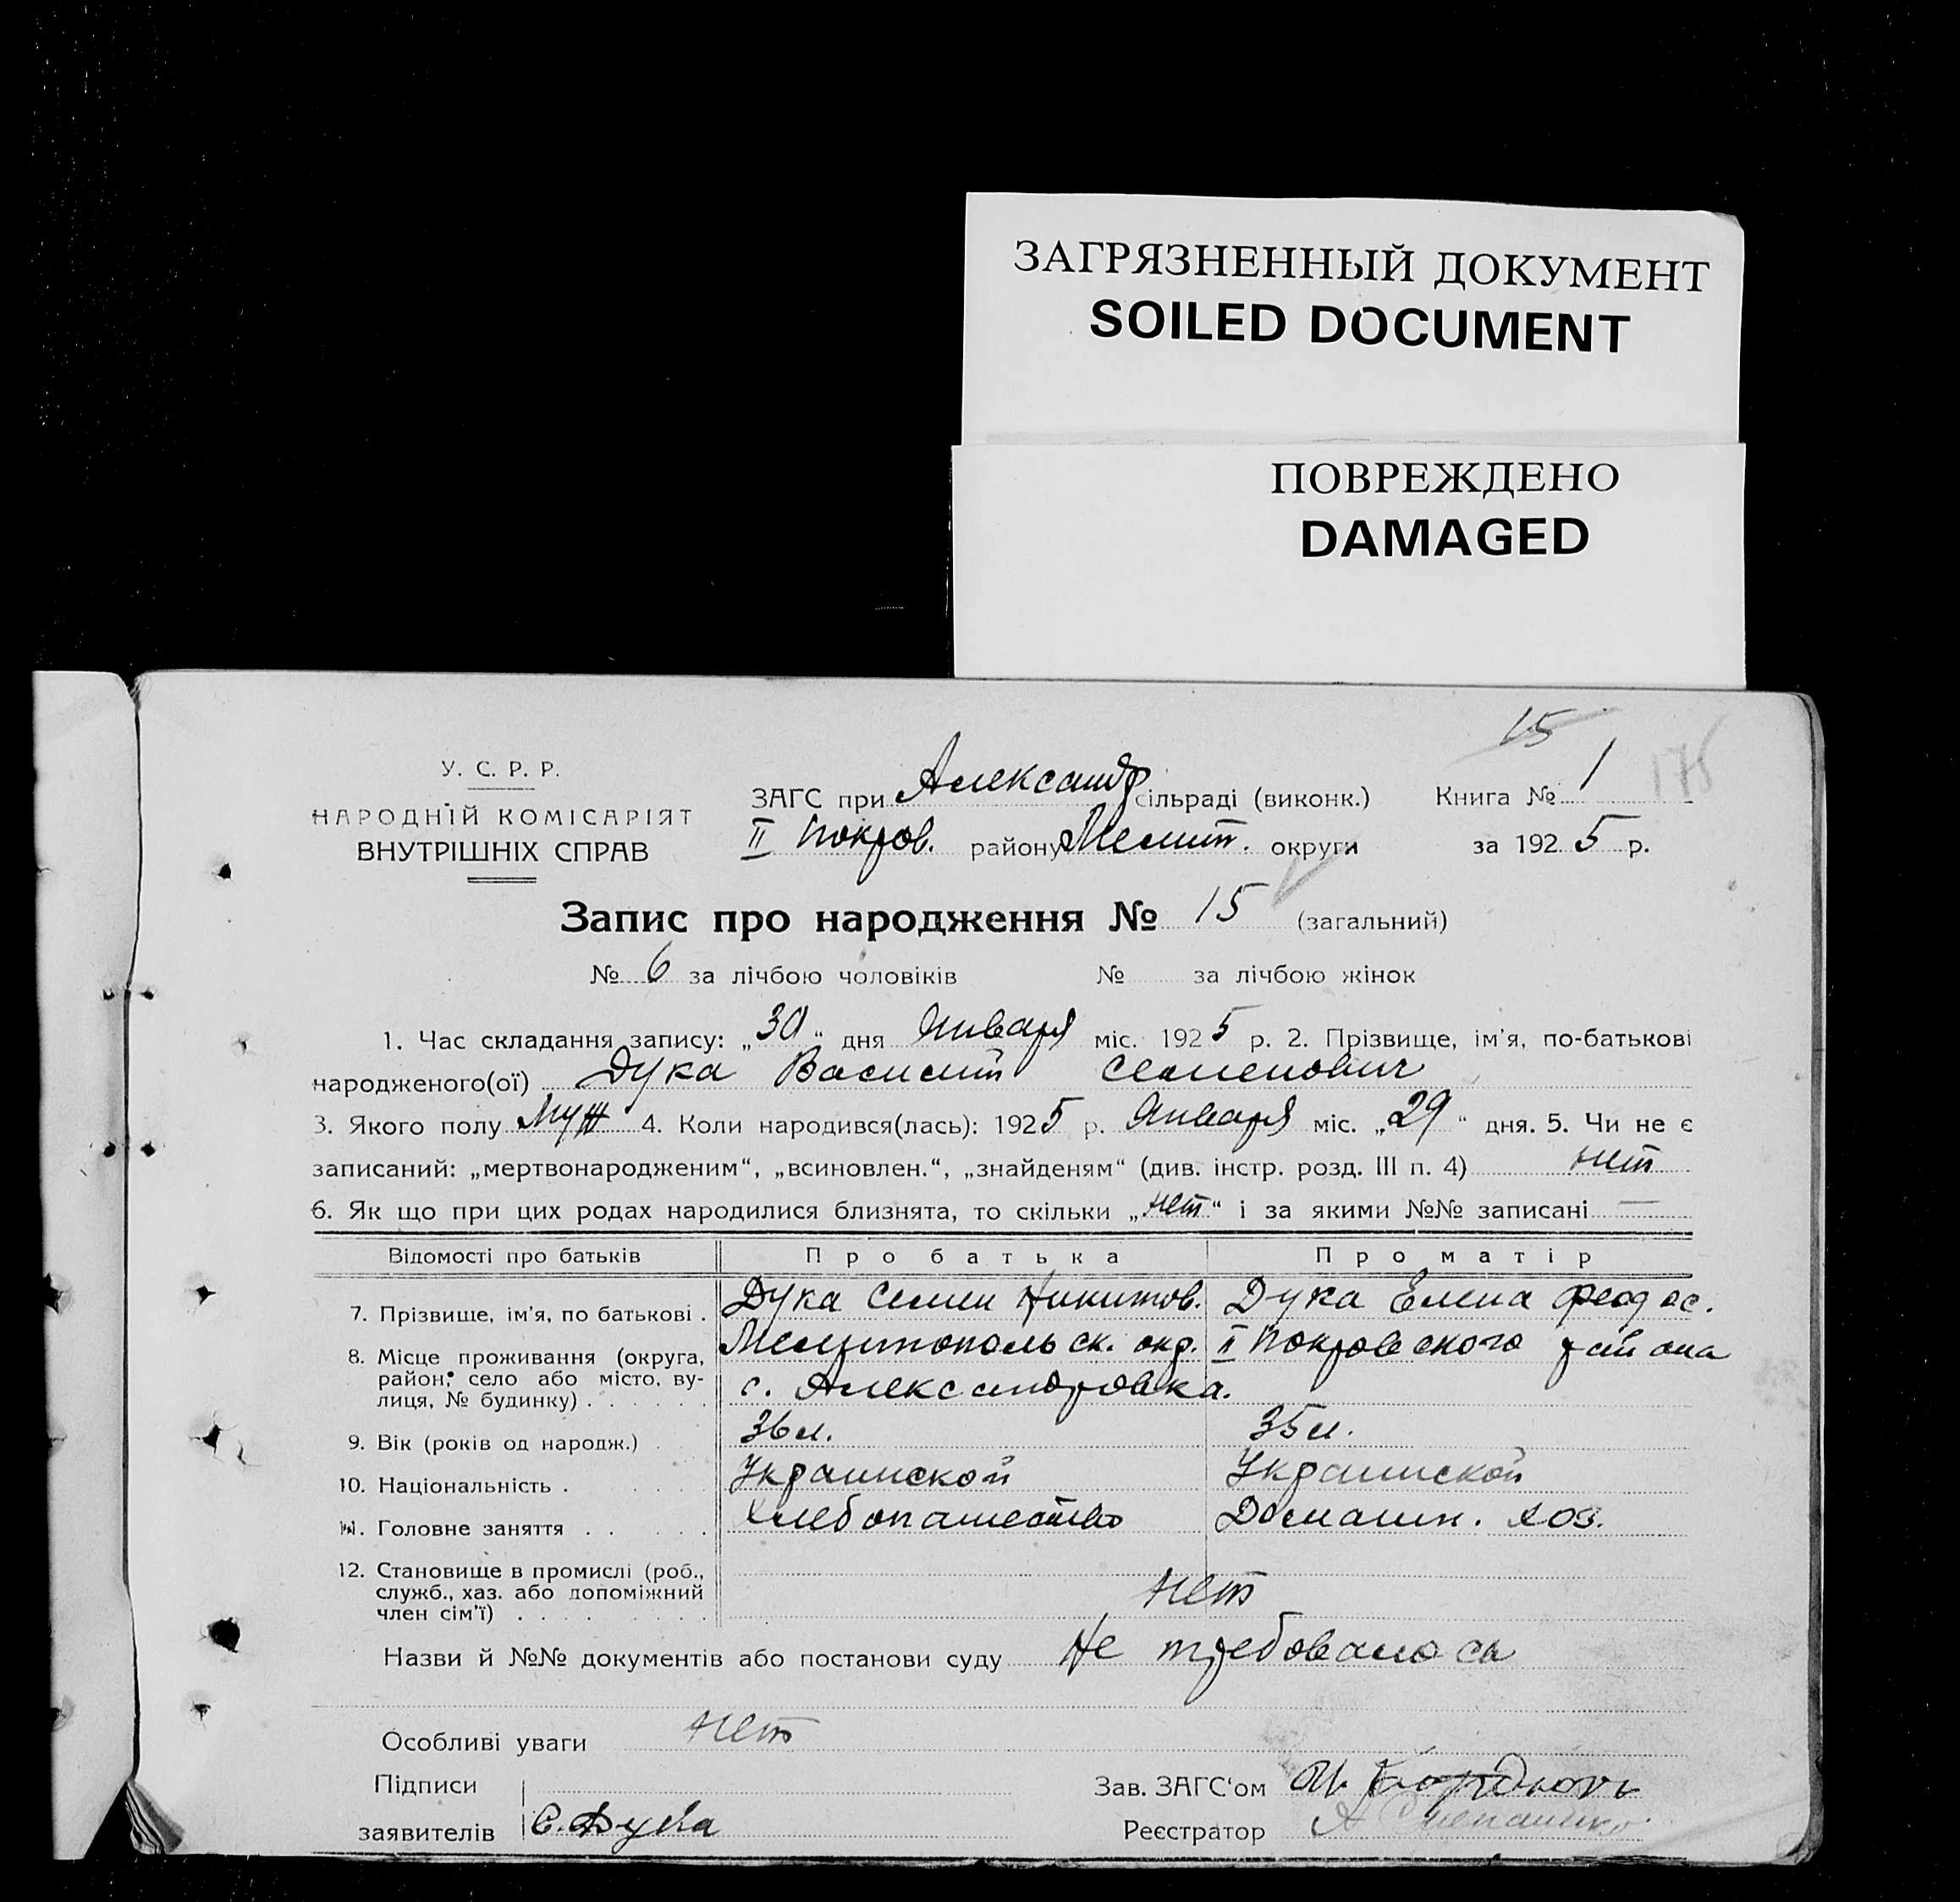 ЗАГРЯЗНЕННЫЙ ДОКУМЕНТ
SOILED DOCUMENT
ПОВРЕЖДЕНО
DAMAGED
15
175
У. С. Р. Р.
НАРОДНІЙ КОМІСАРІЯТ
ВНУТРІШНІХ СПРАВ
ЗАГС при Александр сільраді (виконк.) Книга № 1
II Покров. району Мелит. округи за 1925 р.
Запис про народження № 15 (загальний)
№ 6 за лічбою чоловіків № за лічбою жінок
1. Час складання запису: „30“ дня Января міс. 1925 р. 2. Прізвище, ім'я, по-батькові
народженого(ої) Дука Василий Семенович
3. Якого полу Муж 4. Коли народився(лась): 1925 р. Января міс. „29“ дня. 5. Чи не є
записаний: „мертвонародженим“, „всиновлен.“, „знайденям“ (див. інстр. розд. III п. 4) нет
6. Як що при цих родах народилися близнята, то скільки „нет“ і за якими №№ записані —
Відомості про батьків Про батька Про матір
7. Прізвище, ім'я, по батькові . Дука Семен Никитов. Дука Елена Феодос.
8. Місце проживання (округа, район, село або місто, вулиця, № будинку) . . . . . . Мелитопольск. окр. II Покровского района
с. Александровка.
9. Вік (років од народж.) . 36 л. 35 л.
10. Національність . . . . . Украинской Украинской
11. Головне заняття . . . . . Хлебопашество Домашн. хоз.
12. Становище в промислі (роб., служб., хаз. або допоміжний член сім'ї) . . . . . . нет
Назви й №№ документів або постанови суду Не требовалось
Особливі уваги нет
Підписи
заявителів С. Дука
Зав. ЗАГС'ом
Реєстратор А Степаненко